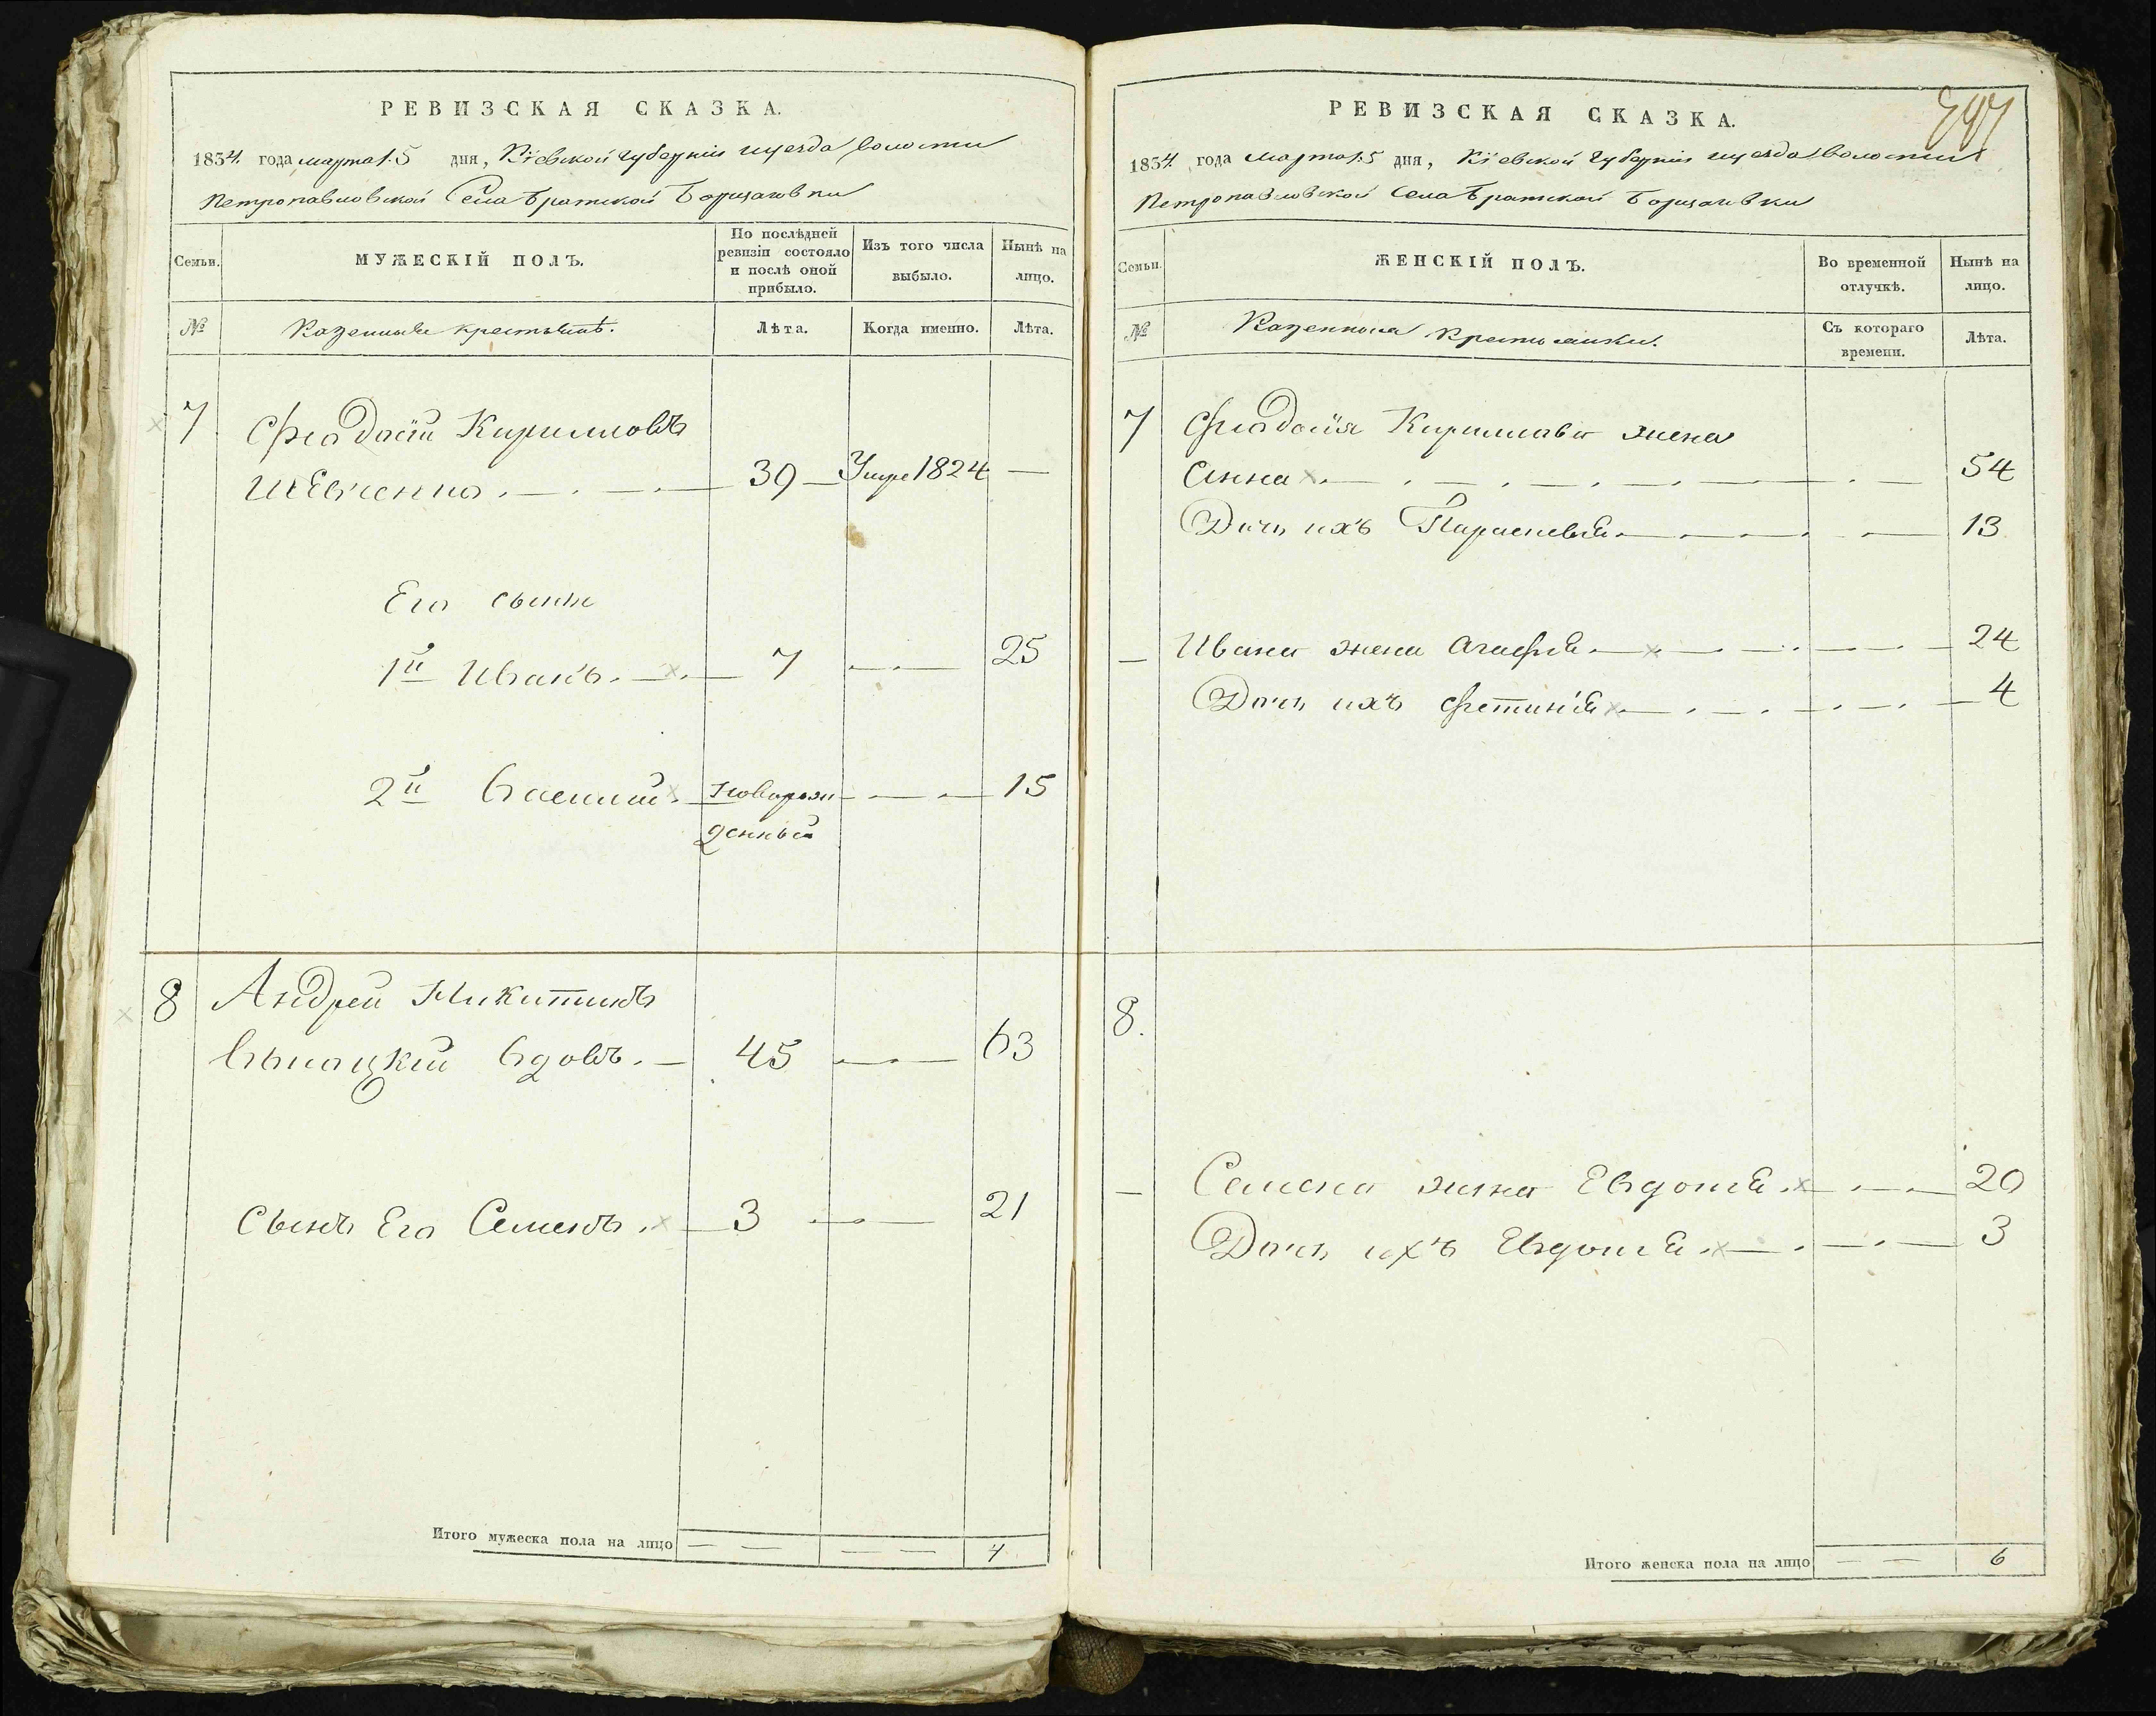 РЕВИЗСКАЯ СКАЗКА.
1834. года марта 15 дня, Кіевской губерніи и уезда волости
Петропавловской Села Братской Борщаговки
Семьи.
МУЖЕСКІЙ ПОЛЪ.
По послѣдней ревизіи состояло и послѣ оной прибыло.
Изъ того числа выбыло.
Нынѣ на лицо.
№
Казенныхъ крестьянъ.
Лѣта.
Когда именно.
Лѣта.
7 Феодосій Кириловъ
Шевченко . — . — . — 39 — Умре 1824 —
Его сыны
1й Иванъ . — . — 7 — . — 25
2й Василий . — новорож — . — . — 15
денный
8 Андрей Никитинъ
вдовъ . — 45 — . — 63
Сынъ Его Семенъ . — 3 — . — 21
Итого мужеска пола на лицо — — — — 4
РЕВИЗСКАЯ СКАЗКА.
1834 года марта 15 дня, Кіевской губерніи и уезда волости
Петропавловской Села Братской Борщаговки
Семьи.
ЖЕНСКІЙ ПОЛЪ.
Во временной отлучкѣ.
Нынѣ на лицо.
№
Казенныя крестьянки.
Съ котораго времени.
Лѣта.
7 Феодосія Кирилова жена
Анна . — . — . — . — . — 54
Дочь ихъ Параскевія . — . — . — 13
— Ивана жена Агафія . — . — . — 24
Дочь ихъ Фетинія . — . — . — 4
8.
— Семена жена Евдокія . — . — 20
Дочь ихъ Евдокія . — . — . — 3
Итого женска пола на лицо — — 6